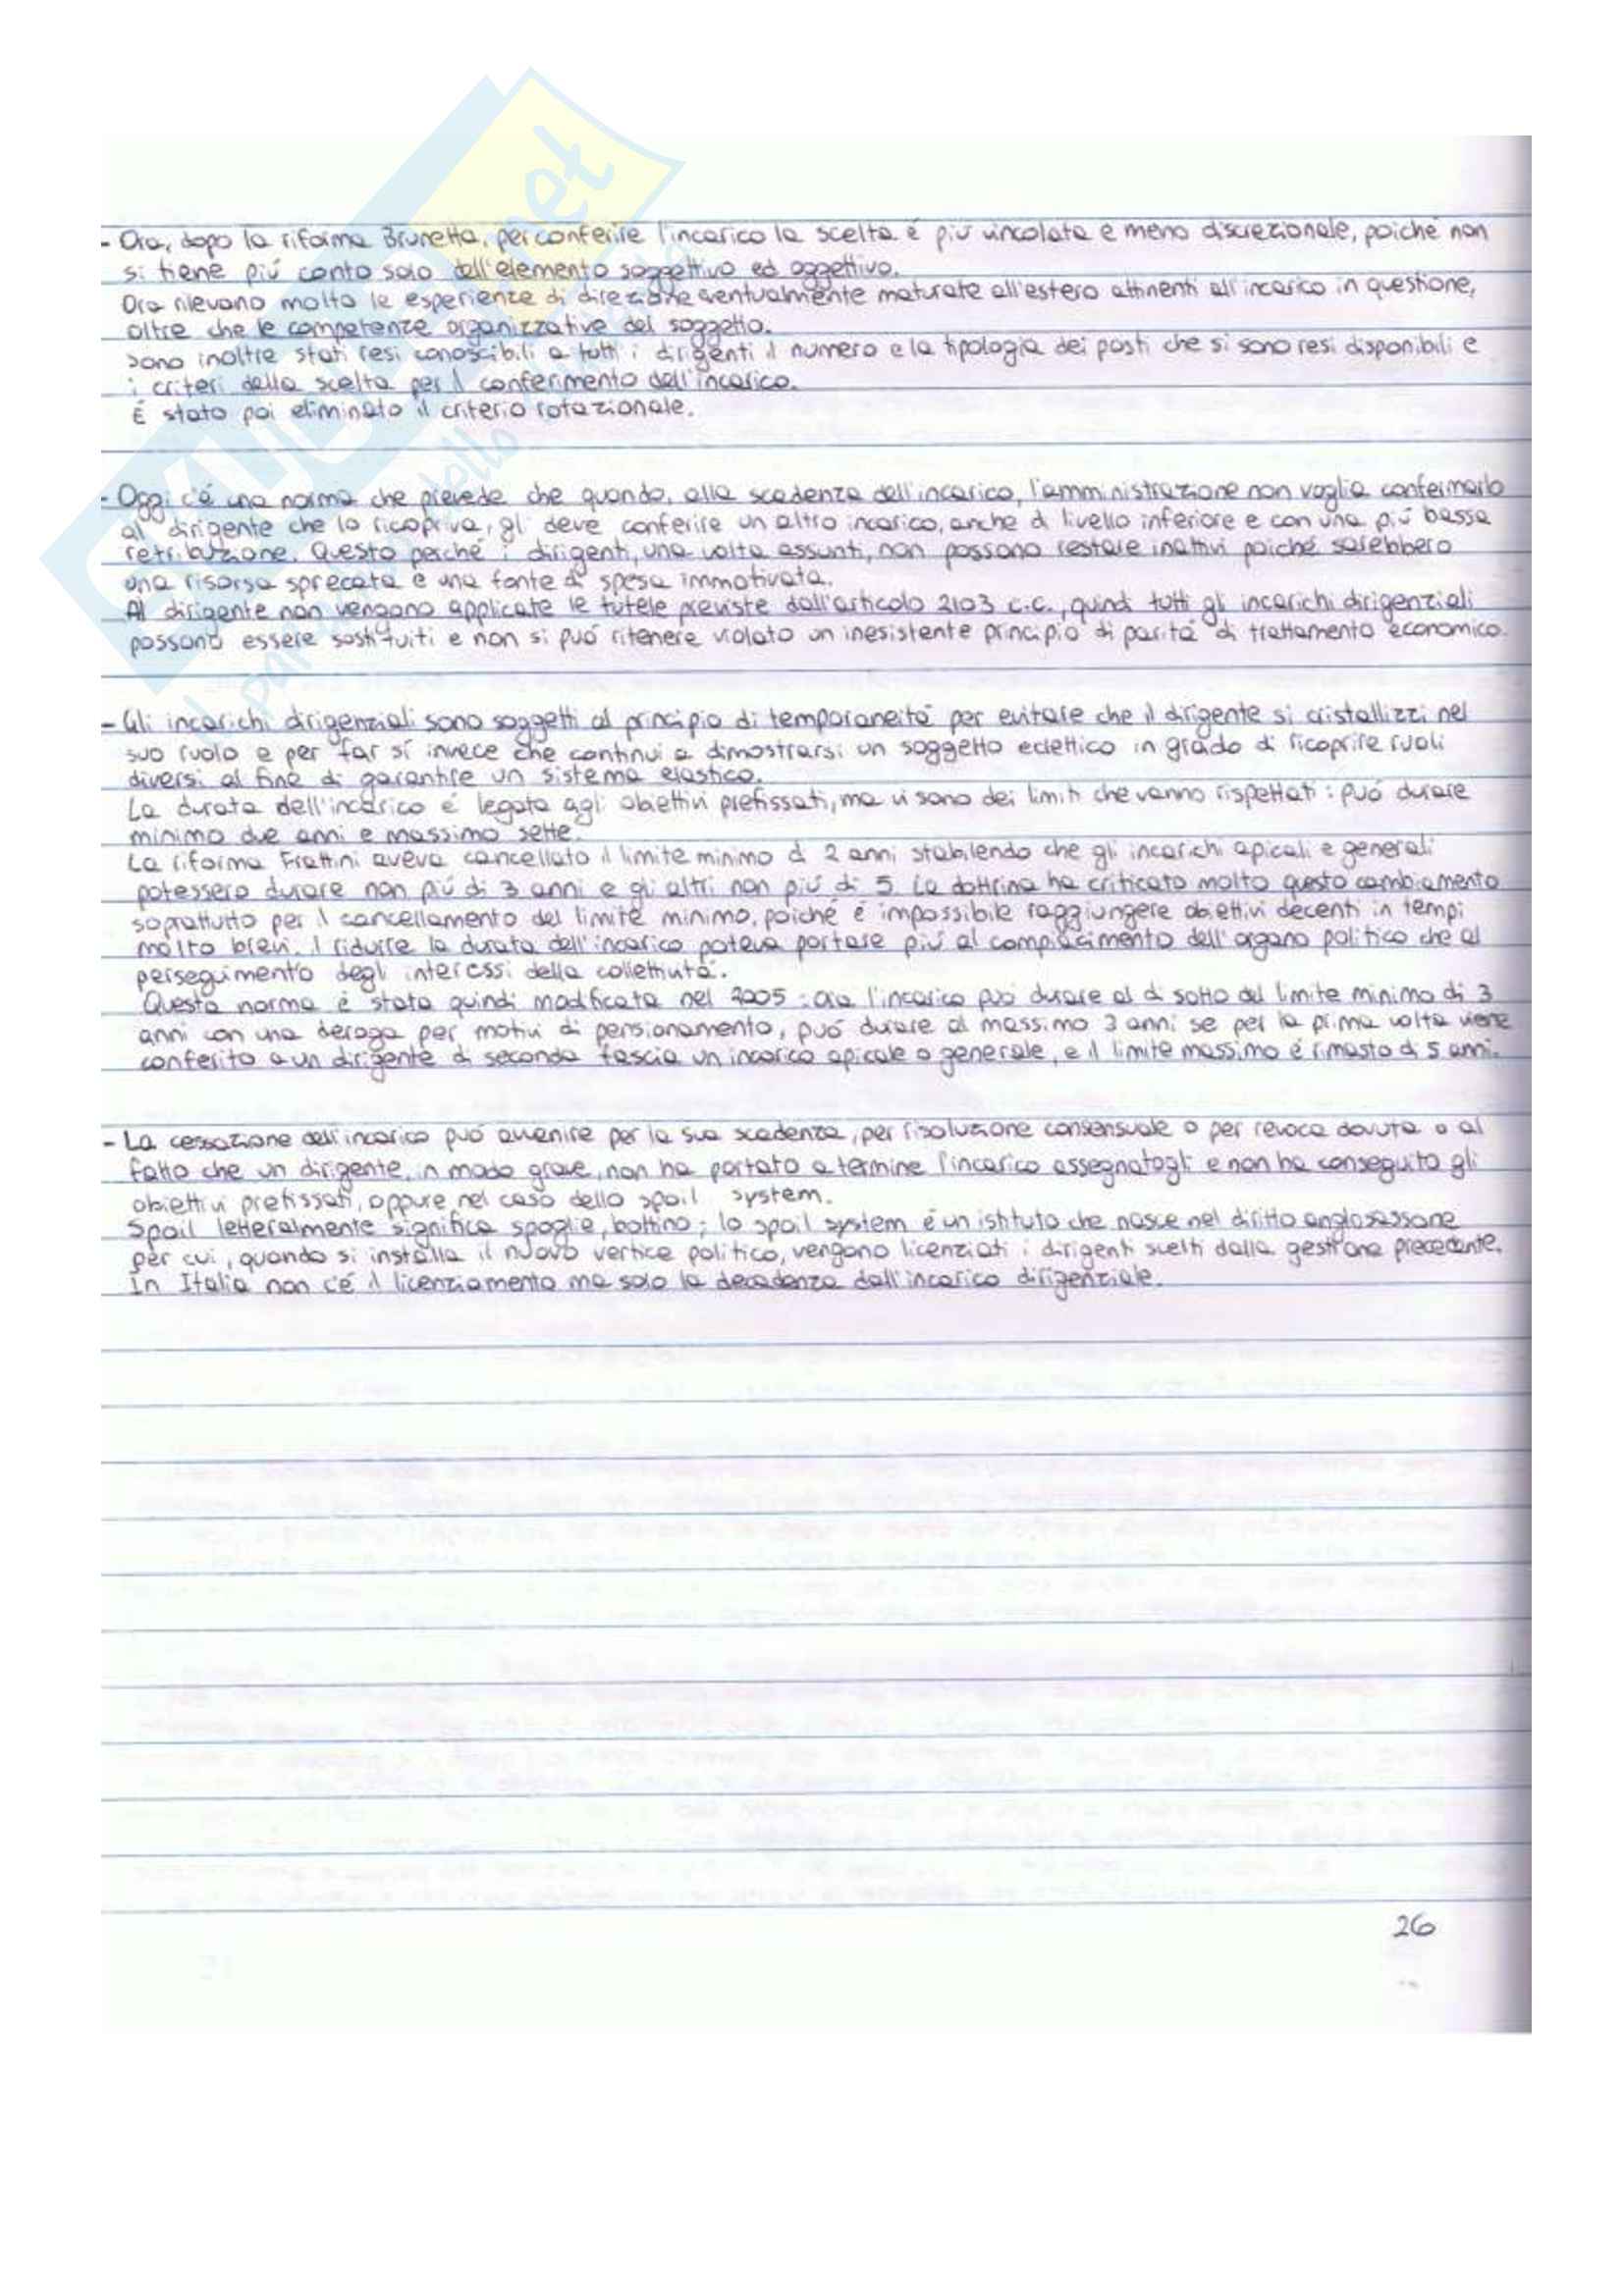 - Ora, dopo la riforma Brunetta, per conferire l'incarico la scelta é piú vincolata e meno discrezionale, poiché non
si tiene piú conto solo dell'elemento soggettivo ed oggettivo.
Ora rilevano molto le esperienze di direzione eventualmente maturate all'estero attinenti all'incarico in questione,
oltre che le competenze organizzative del soggetto.
Sono inoltre stati resi conoscibili a tutti i dirigenti il numero e la tipologia dei posti che si sono resi disponibili e
i criteri della scelta per il conferimento dell'incarico.
É stato poi eliminato il criterio rotazionale.
- Oggi c'é una norma che prevede che quando, alla scadenza dell'incarico, l'amministrazione non voglia confermarlo
al dirigente che lo ricopriva, gli deve conferire un altro incarico, anche di livello inferiore e con una piú bassa
retribuzione. Questo perché i dirigenti, una volta assunti, non possono restare inattivi poiché sarebbero
una risorsa sprecata e una fonte di spesa immotivata.
Al dirigente non vengono applicate le tutele previste dall'articolo 2103 c.c., quindi tutti gli incarichi dirigenziali
possono essere sostituiti e non si puó ritenere violato un inesistente principio di paritá di trattamento economico.
- Gli incarichi dirigenziali sono soggetti al principio di temporaneitá per evitare che il dirigente si cristallizzi nel
suo ruolo e per far sí invece che continui a dimostrarsi un soggetto eclettico in grado di ricoprire ruoli
diversi al fine di garantire un sistema elastico.
La durata dell'incarico é legata agli obiettivi prefissati, ma vi sono dei limiti che vanno rispettati: puó durare
minimo due anni e massimo sette.
La riforma Frattini aveva cancellato il limite minimo di 2 anni stabilendo che gli incarichi apicali e generali
potessero durare non piú di 3 anni e gli altri non piú di 5. La dottrina ha criticato molto questo cambiamento
soprattutto per il cancellamento del limite minimo, poiché é impossibile raggiungere obiettivi decenti in tempi
molto brevi. Il ridurre la durata dell'incarico poteva portare piú al compiacimento dell'organo politico che al
perseguimento degli interessi della collettivitá.
Questa norma é stata quindi modificata nel 2005: ora l'incarico puó durare al di sotto del limite minimo di 3
anni con una deroga per motivi di pensionamento, puó durare al massimo 3 anni se per la prima volta viene
conferito a un dirigente di seconda fascia un incarico apicale o generale, e il limite massimo é rimasto di 5 anni.
- La cessazione dell'incarico puó avvenire per la sua scadenza, per risoluzione consensuale o per revoca dovuta o al
fatto che un dirigente, in modo grave, non ha portato a termine l'incarico assegnatogli e non ha conseguito gli
obiettivi prefissati, oppure nel caso dello spoil system.
Spoil letteralmente significa spoglie, bottino; lo spoil system é un istituto che nasce nel diritto anglosassone
per cui, quando si installa il nuovo vertice politico, vengono licenziati i dirigenti scelti dalla gestione precedente.
In Italia non c'é il licenziamento ma solo la decadenza dall'incarico dirigenziale.
26